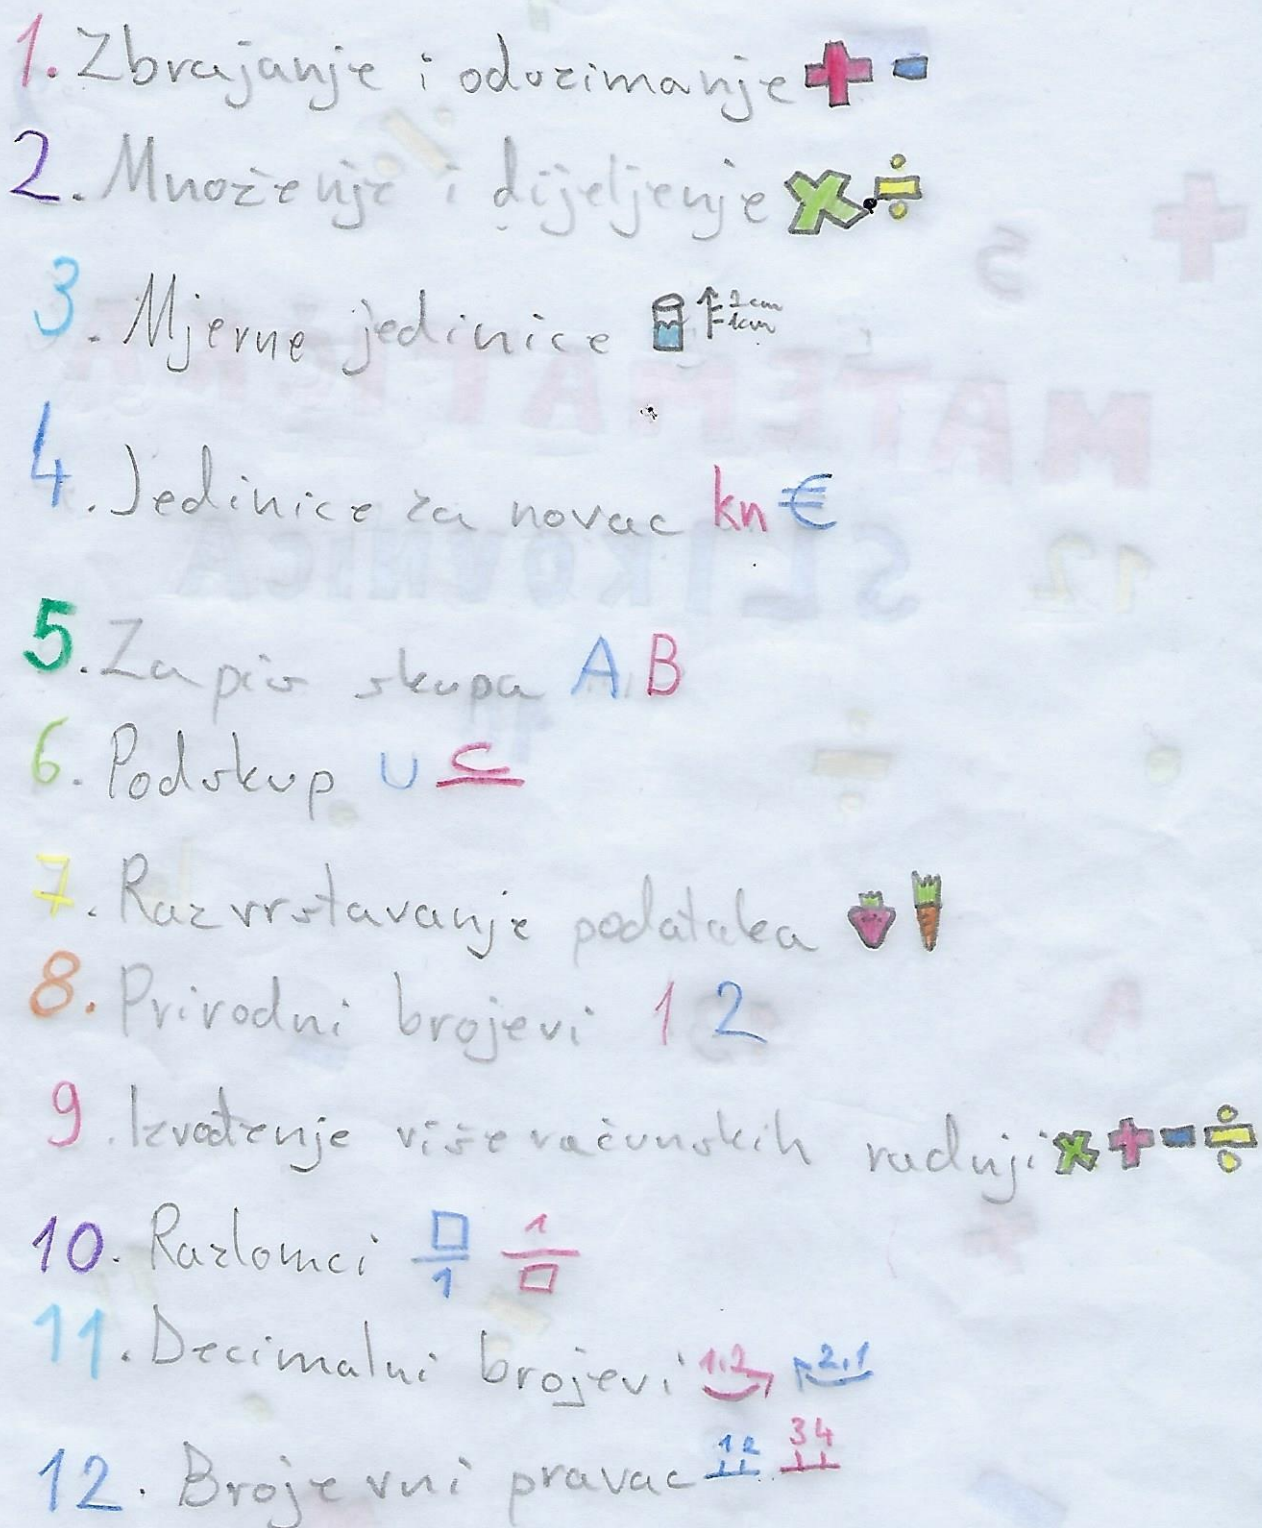 1. Zbrajanje i oduzimanje + -
2. Množenje i dijeljenje x . ÷
3. Mjerne jedinice 2cm 1cm
4. Jedinice za novac kn €
5. Zapis skupa A, B
6. Podskup ∪ ⊆
7. Razvrstavanje podataka
8. Prirodni brojevi 1 2
9. Izvođenje više računskih radnji x + - ÷
10. Razlomci □/1 1/□
11. Decimalni brojevi 1,2 2,1
12. Brojevni pravac 12 34